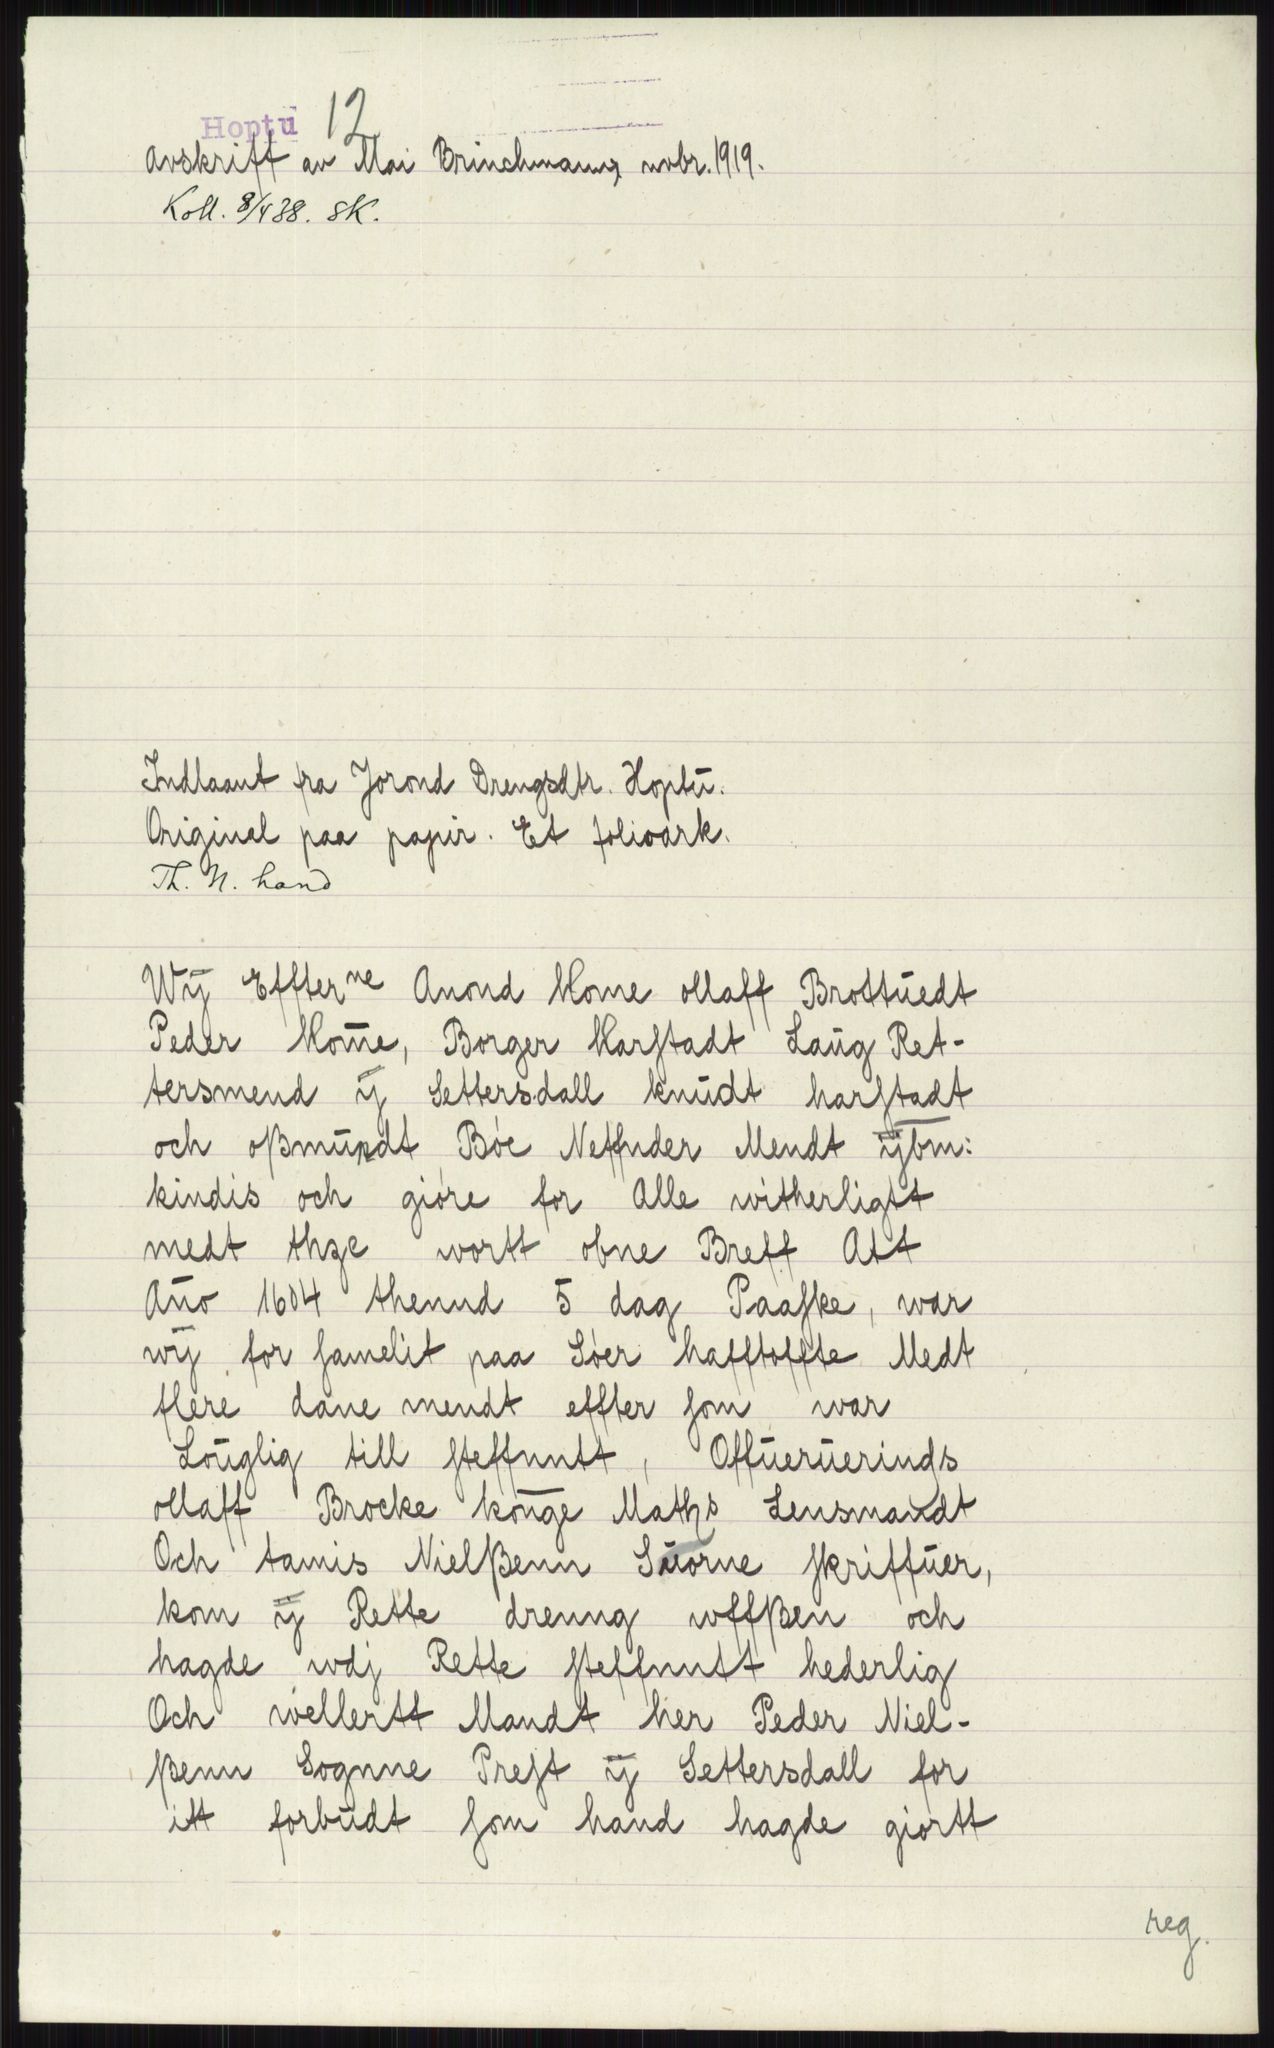 Hoptu 12
Avskrift av Mai Brinchmann, novbr. 1919.
Koll. 8/4 38. SK.
Indlaant fra Jorond Drengsdtr. Hoptū.
Original paa papir. Et folioark.
Th. N. hand
Wÿ Effterne Anond Home ollaff Brottūedt
Peder Home, Borger Harstadt Laūg Ret-
tersmend ÿ Settersdall knūdt harstadt
och oßmūndt Bóe Neffnder Mendt ÿbm:
kindis och gióre for Alle witherligtt
medt thze wortt obne Breff Att
Año 1604 thennd 5 dag Paaske, war
wÿ for samelit paa Sóer hafftoffte Medt
flere dane mendt effter som war
Loūglig till steffnntt, Offūerūerinds
ollaff Brocke konge Maths Lensmandt
Och tamis Nielßenn Sūorne skriffūer,
kom ÿ Rette drenng wffßen och
hagde wdj Rette steffnntt hederlig
Och wellertt Mandt her Peder Niel-
ßenn Sognne Prest ÿ Settersdall for
itt forbūdt som hand hagde giortt
reg.